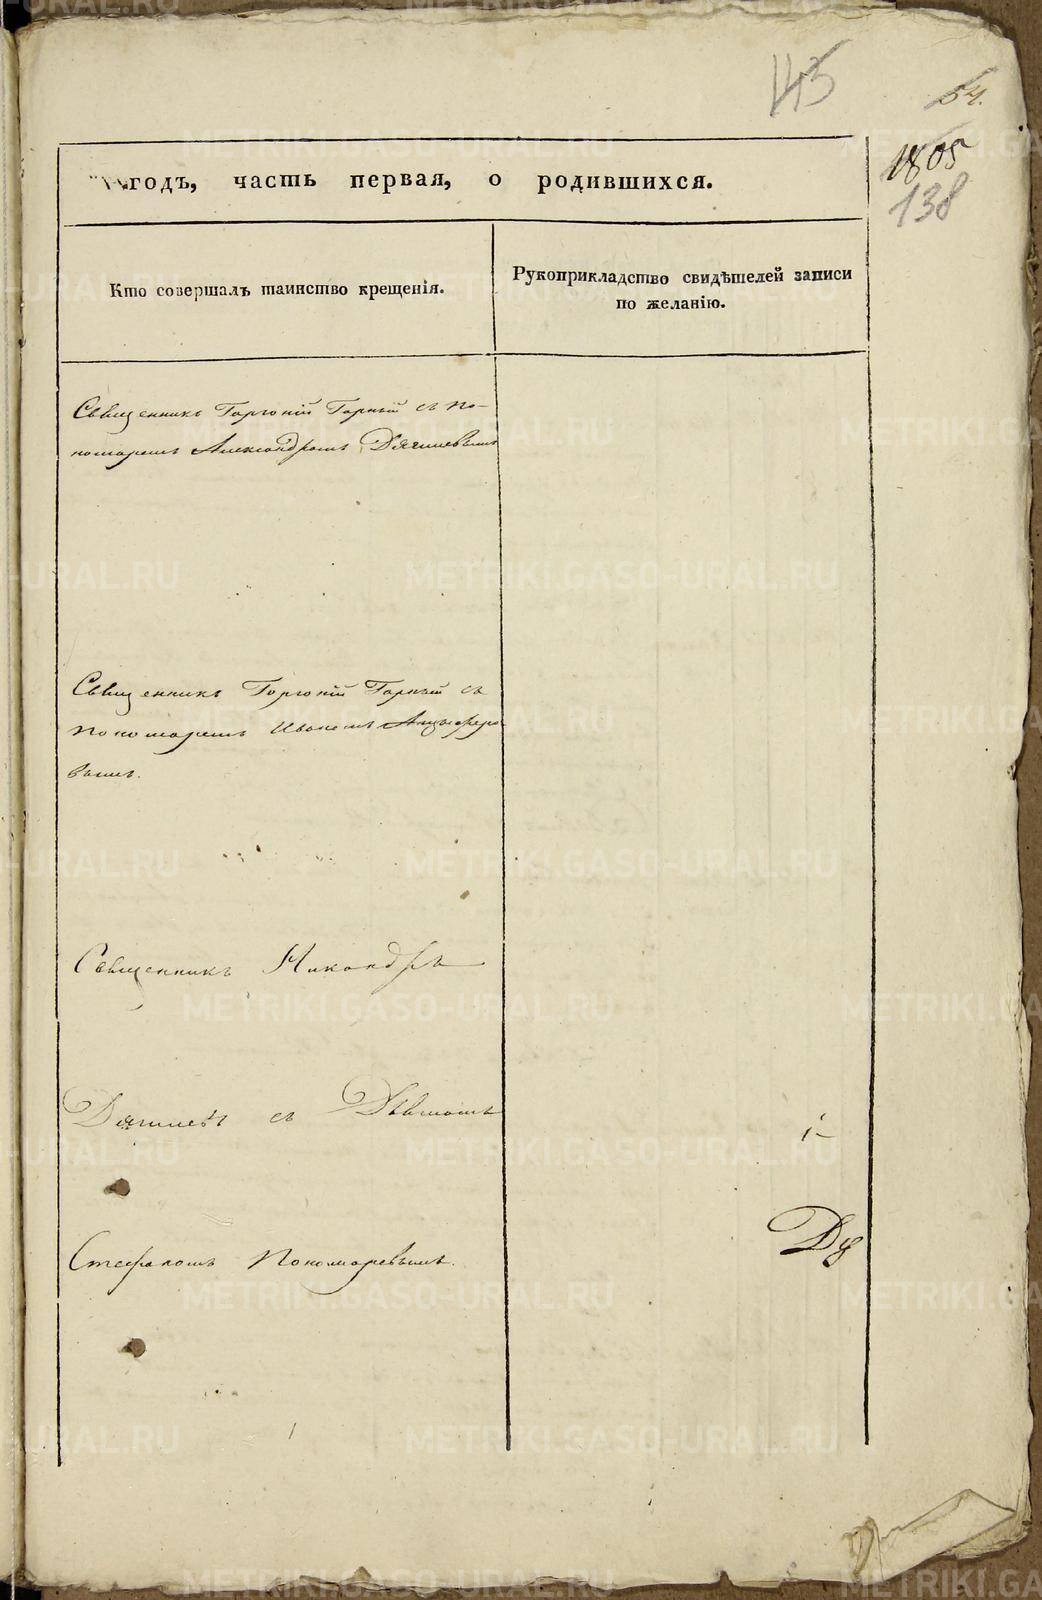 143
54.
1805
138
годъ, часть первая, о родившихся.
Кто совершалъ таинство крещенія.
Рукоприкладство свидѣтелей записи
по желанію.
Священникъ Горгоній Горный съ по-
номаремъ Александромъ Дягилевымъ
Священникъ Горгоній Горный съ
пономаремъ Иваномъ Анцыферо-
вымъ.
Священникъ Никандръ
Дягилевъ съ Дьячкомъ
Стефаномъ Пономаревымъ.
METRIKI.GASO-URAL.RU